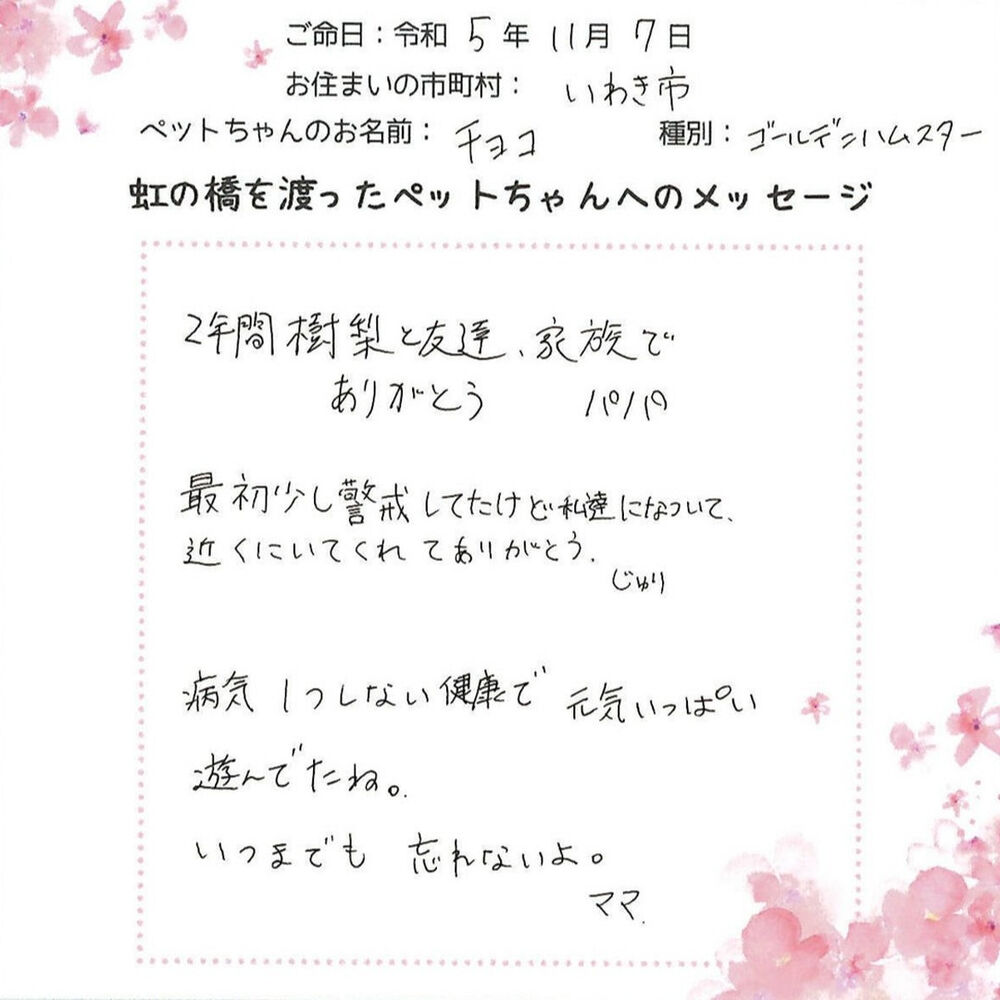 ご命日：令和 5 年 11 月 7 日
お住まいの市町村： いわき市
ペットちゃんのお名前： チョコ 種別： ゴールデンハムスター
虹の橋を渡ったペットちゃんへのメッセージ
2年間 樹梨と友達、家族で
ありがとう パパ
最初少し警戒してたけど私達になついて、
近くにいてくれてありがとう.
じゅり
病気1つしない健康で 元気いっぱい
遊んでたね。
いつまでも 忘れないよ。
ママ.